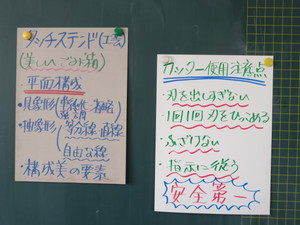 タッチステンド(工芸)
(楽しいごみ箱)
・平面構成
・具象形(単純化・省略
強調)
・抽象形(等分線 直線
自由な線)
・構成美の要素
カッター使用注意点
・刃を出しすぎない
・1回1回刃をひっこめる
・ふざけない
・指示に従う
安全第一